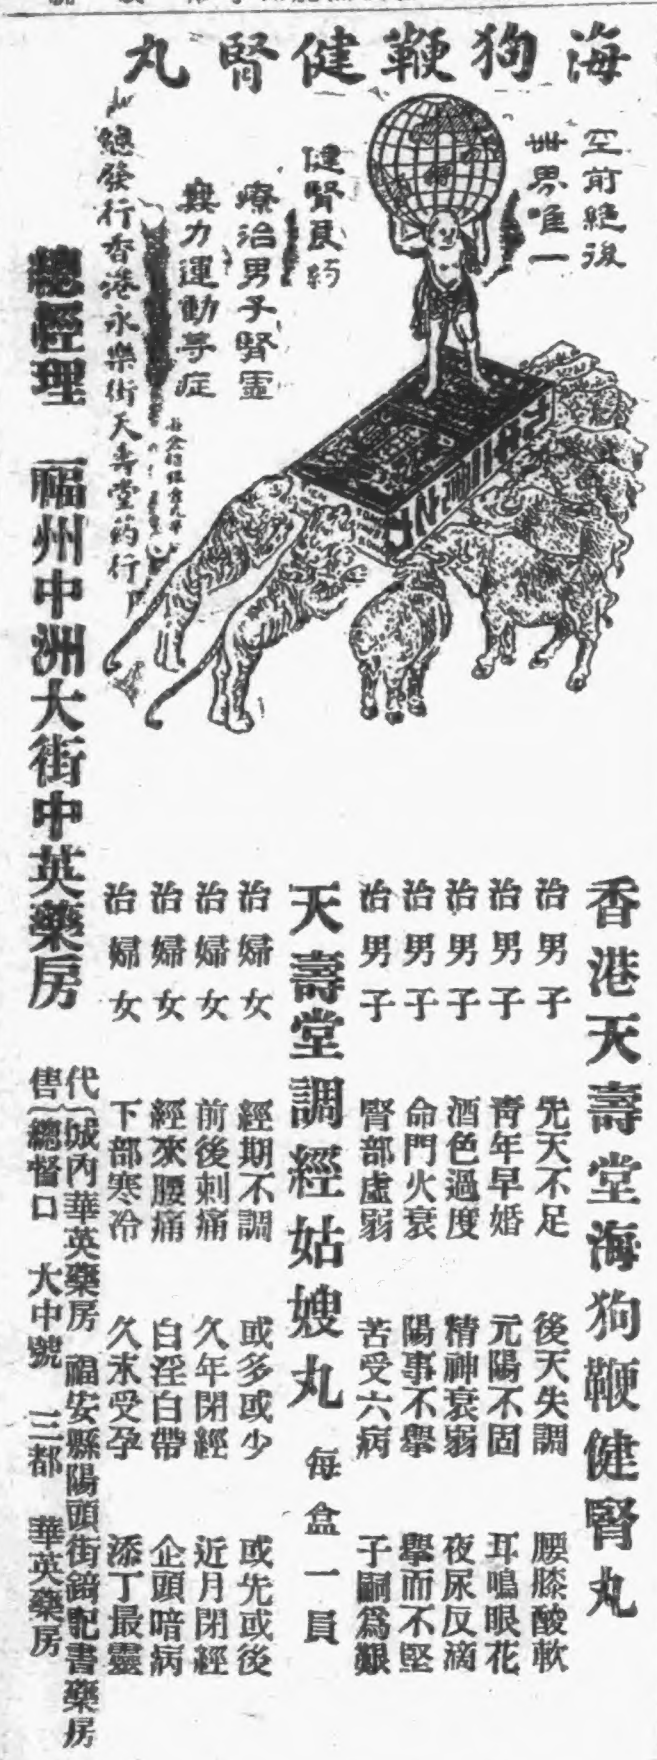 海狗鞭健腎丸
空前絕後
世界唯一
健腎良药
療治男子腎虛
無力運動等症
總發行香港永樂街天壽堂药行
香港天壽堂海狗鞭健腎丸
治男子 先天不足 後天失調 腰膝酸軟
治男子 靑年早婚 元陽不固 耳鳴眼花
治男子 酒色過度 精神衰弱 夜尿反滴
治男子 命門火衰 陽事不擧 擧而不堅
治男子 腎部虛弱 苦受六病 子嗣爲艱
天壽堂調經姑嫂丸 每盒一員
治婦女 經期不調 或多或少 或先或後
治婦女 前後刺痛 久年閉經 近月閉經
治婦女 經來腰痛 白淫白帶 企頭暗病
治婦女 下部寒冷 久未受孕 添丁最靈
總經理 福州中洲大街中英藥房
代售
城內華英藥房 福安縣陽頭街錦記書藥房
總督口 大中號 三都 華英藥房